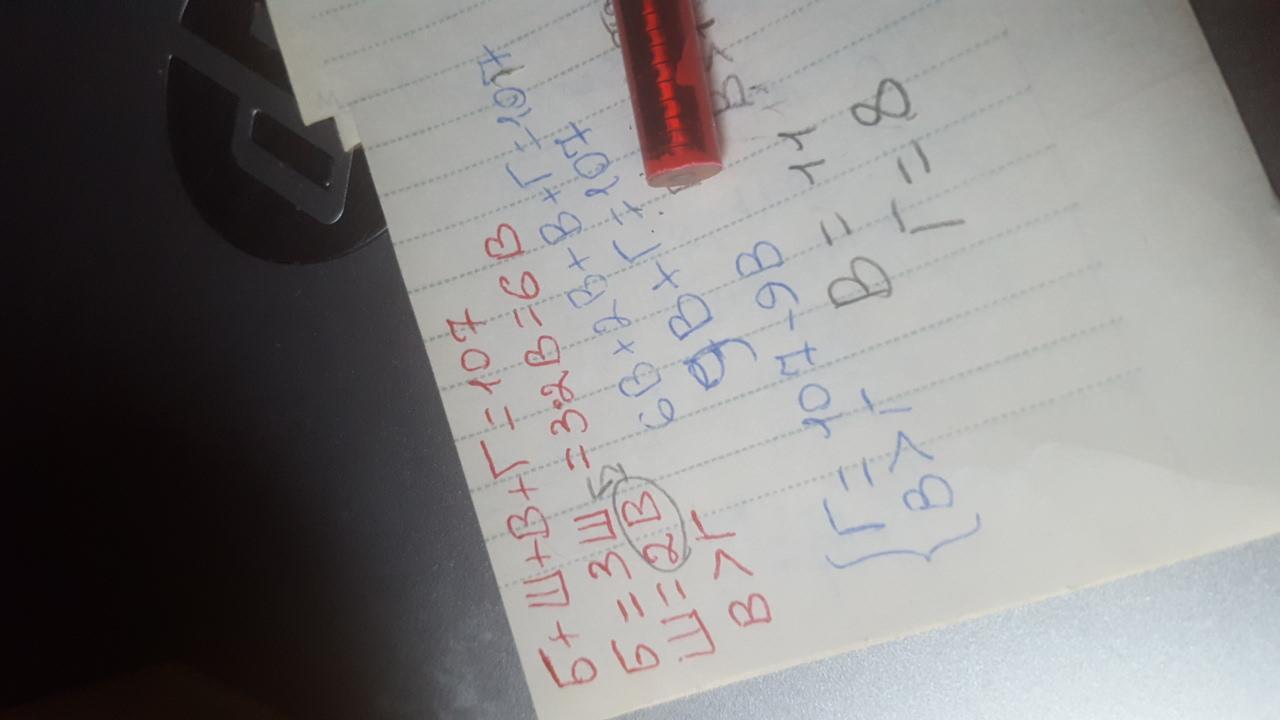 Б+Ш+В+Г=107
Б=3Ш=3·2В=6В
Ш=2В
В>Г
6В+2В+В+Г=107
9В+Г=107
Г=107-9В
В>Г
В=11
Г=8